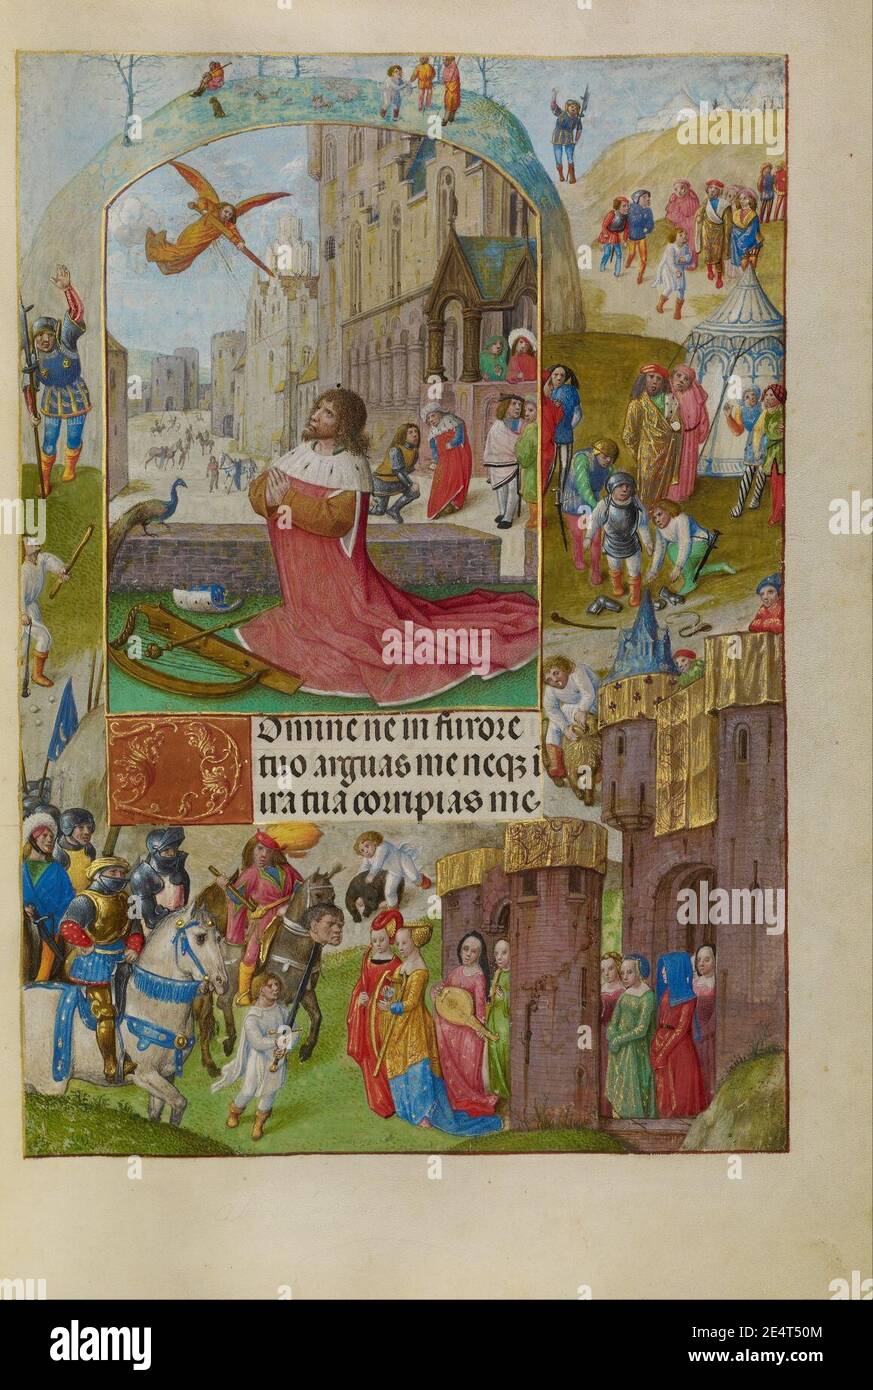 Domine ne in furore
tuo arguas me neqz i
ira tua corripias me
a
alamy
alamy
Image ID: 2E4T50M
www.alamy.com